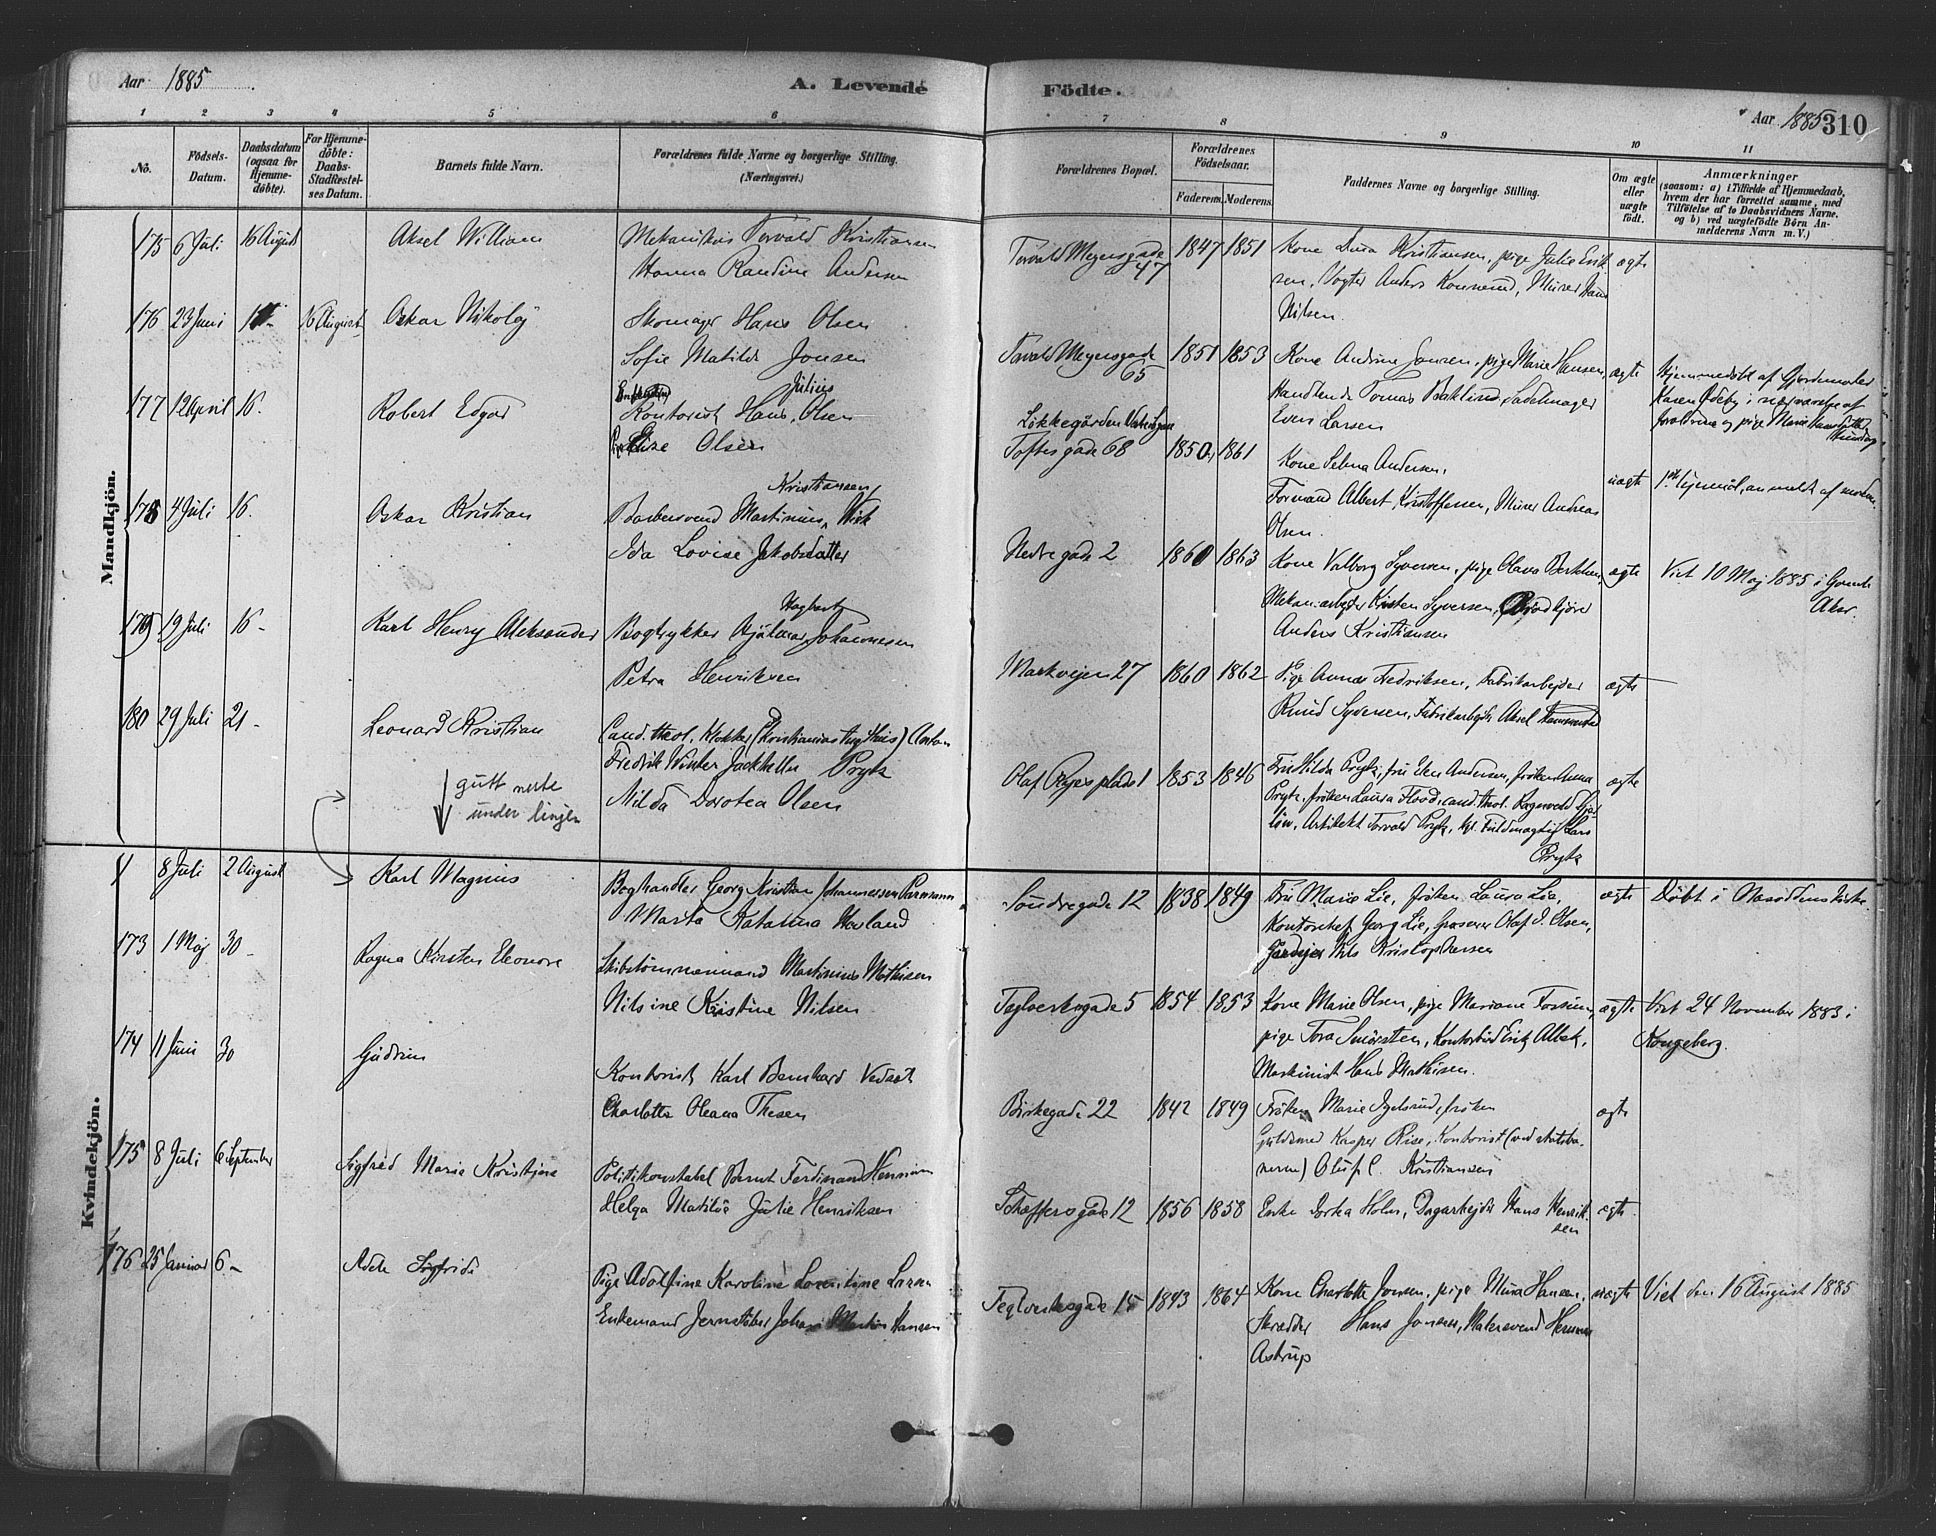 Aar 1885
A. Levende Födte.
Aar 1885 310
1 2 3 4 5 6 7 8 9 10 11
No.
Födsels-Datum.
Daabsdatum (ogsaa for Hjemme-döbte).
For Hjemme-döbte: Daabs-Stadfæstel-ses Datum.
Barnets fulde Navn.
Forældrenes fulde Navne og borgerlige Stilling. (Næringsvei.)
Forældrenes Bopæl.
Forældrenes Födselsaar.
Faderens. Moderens.
Faddernes Navne og borgerlige Stilling.
Om ægte eller uægte födt.
Anmærkninger
(saasom: a) i Tilfælde af Hjemmedaab, hvem der har forrettet samme, med Tilföielse af to Daabsvidners Navne. og b) ved uægtefödte Börn An-melderens Navn m. V.)
Mandkjön.
175 6 Juli 16 August Aksel William Mekanikus Torvald Kristiansen
Hanna Randine Andersen
Torvald Meyersgade 47 1847 1851 Kone Lina Kristiansen, pige Julie Erik
sen, Vogter Anders Konnerud, Murer Hans
Nilsen
ægte
176 23 Juni 16 August Oskar Nikolaj Skomager Hans Olsen
Sofie Matilde Jonsen
Torvald Meyersgade 65 1851 1853 Kone Andrine Jansen, pige Marie Hansen,
Handlende Tomas Baklund, Sadelmager
Even Larsen
ægte Hjemmedöbt af Gjordemoder
Karen Ödeby i nærværelse af
forældrene og pige Marie
177 12 April 16. Robert Edgar Kontorist Hans Julius Olsen
Elise Olsen
Lökkegården
Toftesgade 68 1850 1861 Kone Selma Andersen,
Formand Albert Kristoffersen, Murer Andreas
Olsen.
uægte anmeldt af moderen
178 4 Juli 16. Oskar Kristian Barbersvend Martinius Kristiansen
Ida Lovise Jakobsdatter
Nedregade 2 1860 1863 Kone Valborg Syversen, pige Olava
Mekan. arbejder Kristen Syversen,
Anders Kristiansen
ægte Viet 10 Maj 1885 i Gamle
Aker.
179 19 Juli 16 - Karl Henry Aleksander Bogtrykker Hjalmar Hagbart Johannesen
Petra Henriksen
Markvejen 27 1860 1862 Pige Anna Fredriksen, Fabrikarbejder
Knud Syversen, Fabrikarbejder Aksel
ægte
180 29 Juli 21 - Leonard Kristian Cand. theol. Klokker (Kristianias tugthus) Anton
Fredrik Winter Jackhelln Prytz
Milda Dorotea Olsen
Olaf Ryes plads 1 1853 1846 Fru Hilda Prytz, fru Elen Andersen, fröken Anna
Prytz, fröken Laura Flood, cand. theol. Ragnvald
Arkitekt Torvald Prytz, Fuldmægtig Lars
Prytz
ægte
gutt neste
under linjen
Kvindekjön.
8 Juli 2 August Karl Magnus Boghandler Georg Kristian Johannessen Parmann
Marta Katarina Hovland
Söndregade 12 1838 1849 Fru Marie Lie, fröken Laura Lie,
Kontorchef Georg Lie, Grosserer Olaf J. Olsen,
Gårdejer Nils Kristophersen
ægte Döbt i Nesoddens kirke.
173 1 Maj 30 - Ragna Kirsten Eleonore Skibstömmermand Martinius Mathisen
Nilsine Kristine Nilsen
Teglverksgade 5 1854 1853 Kone Marie Olsen, pige Mariane
pige Tora Smörsten, Kontorbud Erik Albek,
Maskinist Hans Mathisen.
ægte Viet 24 November 1883 i
Kongsberg.
174 11 Juni 30 Gudrun Kontorist Karl Bernhard
Charlotte Oleana Thesen
Birkegade 22 1842 1849 Fröken Marie Igelsrud, fröken
Guldsmed Kasper Rise, Kontorist (ved statsba-
nerne) Oluf C. Kristiansen
ægte
175 8 Juli 6 September Sigfred Marie Kristjane Politikonstabel Bernt Ferdinand Henrum
Helga Matilde Julie Henriksen
Schæffersgade 12 1856 1858 Enke Dorka Holm, Dagarbejder Hans Henrik-
sen
ægte.
176 25 Januar 6 - Adele Sigfride Pige Adolfine Karoline Lorentine Larsen
Enkemand Jernstöber Johan Martin Hansen
Teglverksgade 15 1843 1864 Kone Charlotte Jonsen, pige Mina Hansen,
Skrædder Hans Jonsen, Malersvend Herman
Astrup
uægte Viet den 16 August 1885